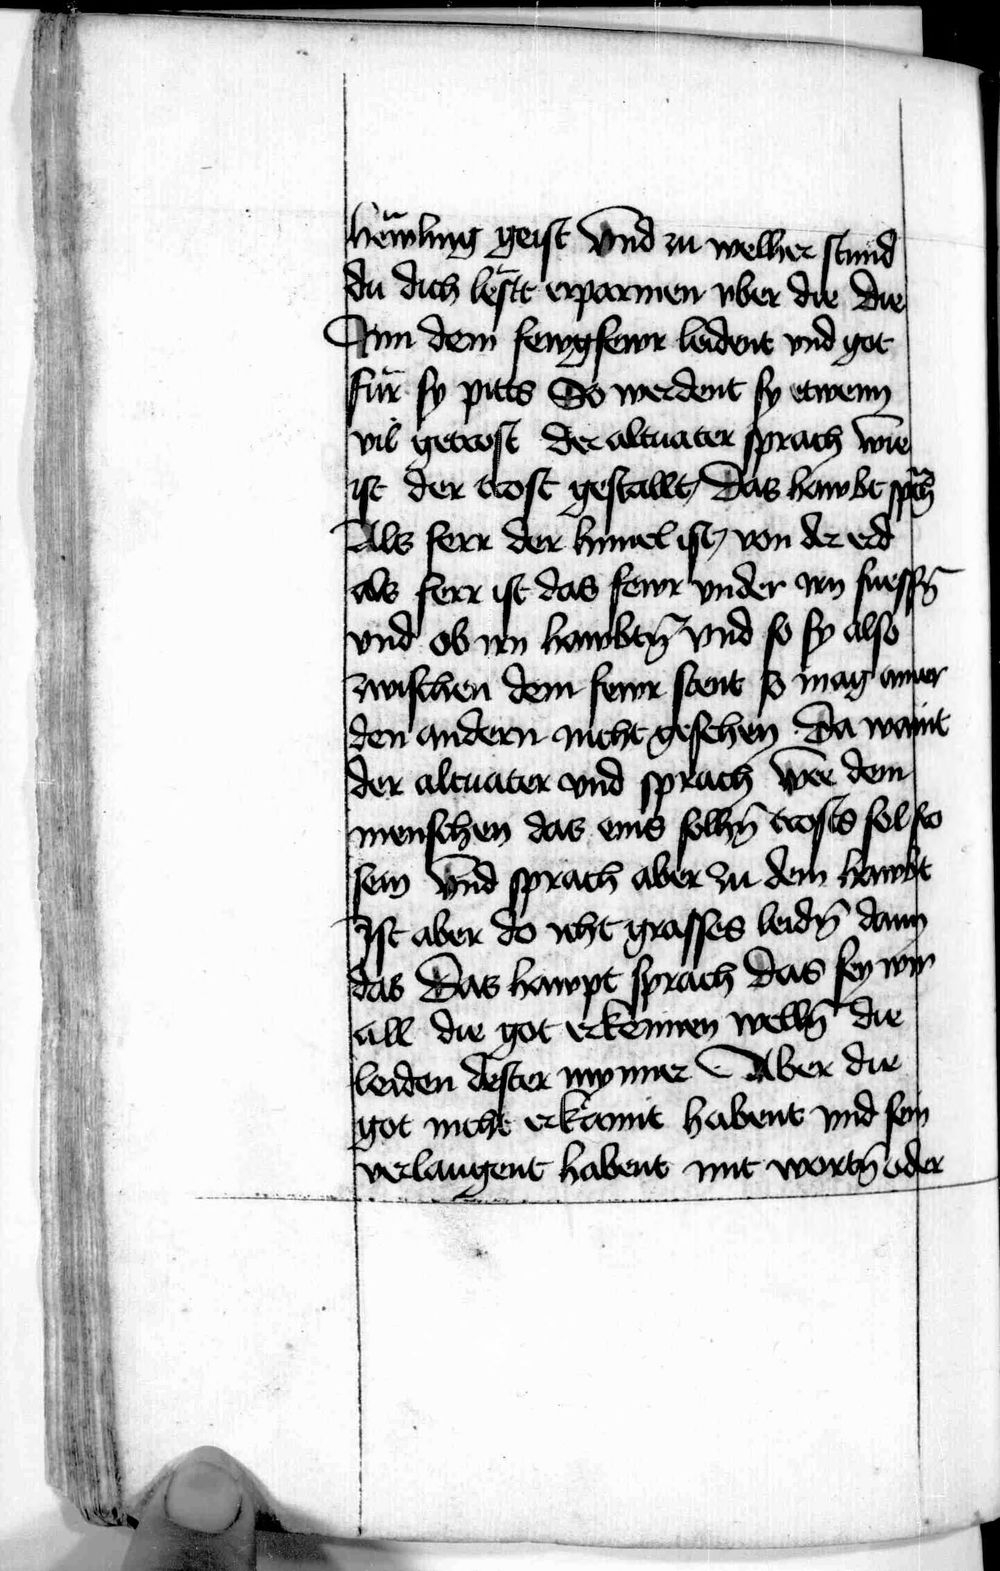 heẅling geist Vnd zu welher stund
du dich lëstt erparmen vber die die
Inn dem fewgfewr leident vnd got
für sy pitts So werdent sy etwenn
vil getrost der altuater sprach wie
ist der trost gestallt Das hawbt sprach
Als ferr der himel ist von der erd
als ferr ist das fewr vnder irn fuessn̄
vnd ob irn hawbtn̄ vnd so sy also
zwischen dem fewr stent so mag ainer
den andern nicht gesehen Da waint
der altuater vnd sprach wee dem
menschen das eins solhn̄ trosts sol fro
sein Vnd sprach aber zu dem hawbt
Ist aber do icht grasses leidn̄ dann
das Das hawpt sprach Das sey wir
all die got erkennen welln̄ die
leiden dester mynner Aber die
got nicht erkännt habent vnd sein
verlaugent habent mit wortn̄ oder